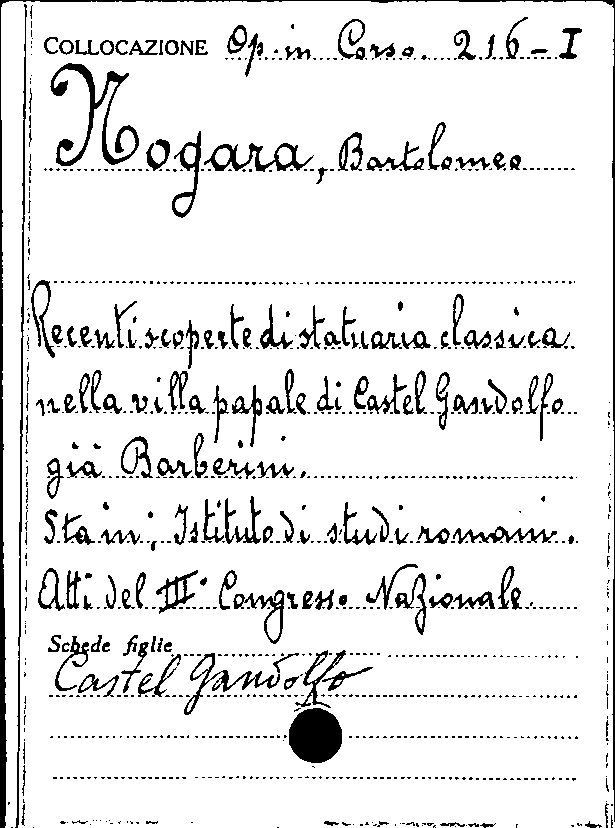 COLLOCAZIONE Op. in Corso. 216-I
Nogara, Bartolomeo
Recenti scoperte di statuaria classica
nella villa papale di Castel Gandolfo
già Barberini.
Sta in; Istituto di studi romani.
Atti del III° Congresso Nazionale.
Schede figlie
Castel Gandolfo